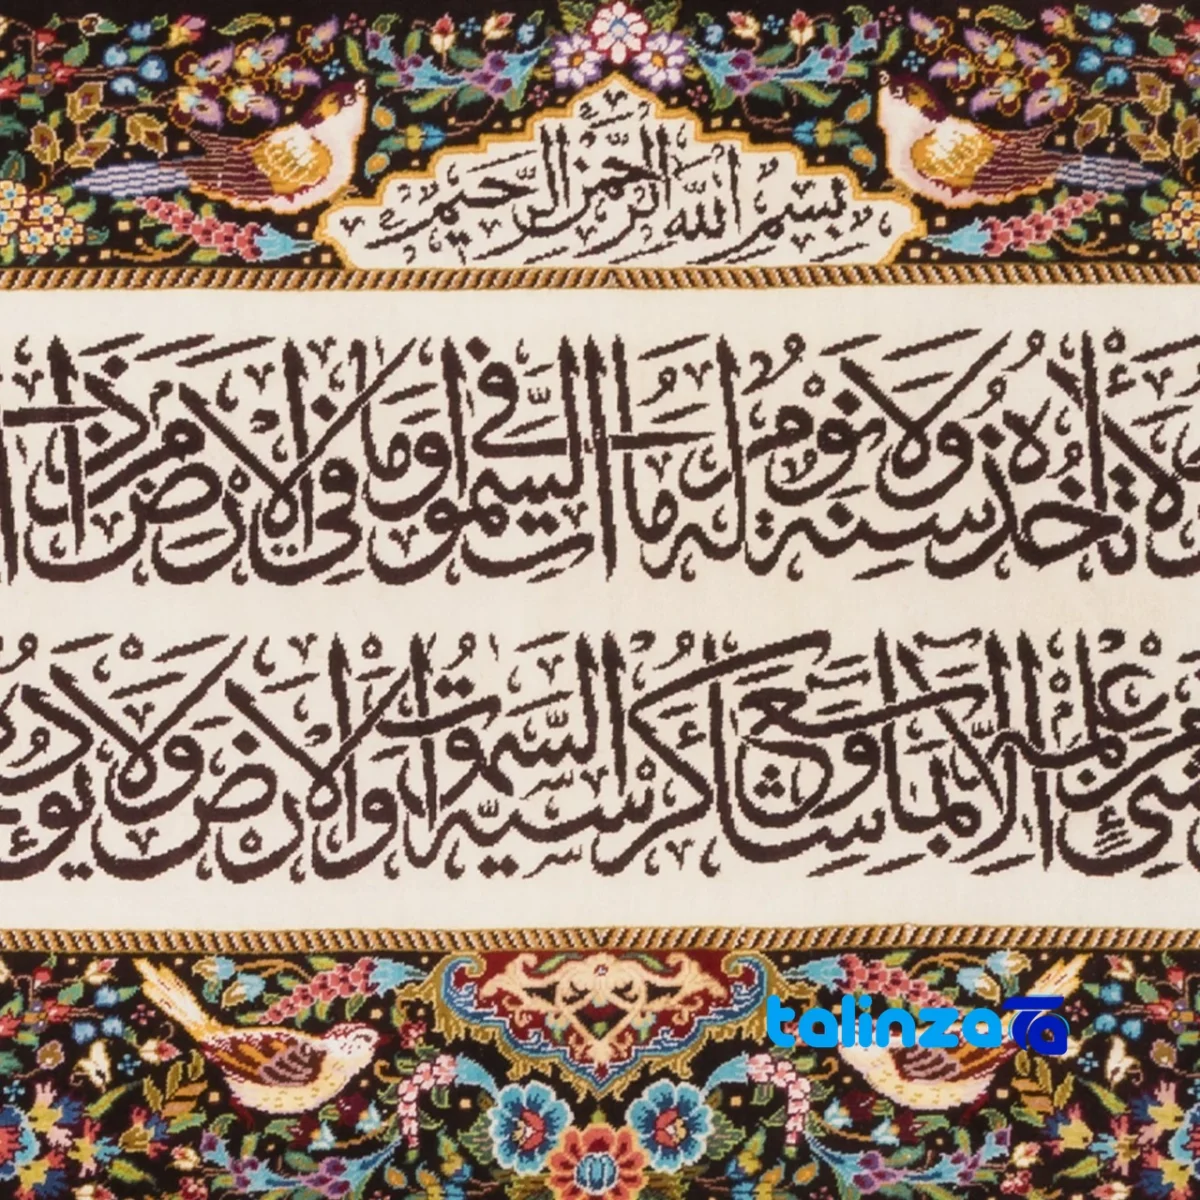 بِسْمِ اللَّهِ الرَّحْمَنِ الرَّحِيمِ
لَا تَأْخُذُهُ سِنَةٌ وَلَا نَوْمٌ لَهُ مَا فِي السَّمَوَاتِ وَمَا فِي الْأَرْضِ مَنْ ذَا
عِلْمِهِ إِلَّا بِمَا شَاءَ وَسِعَ كُرْسِيُّهُ السَّمَوَاتِ وَالْأَرْضَ وَلَا
talinza